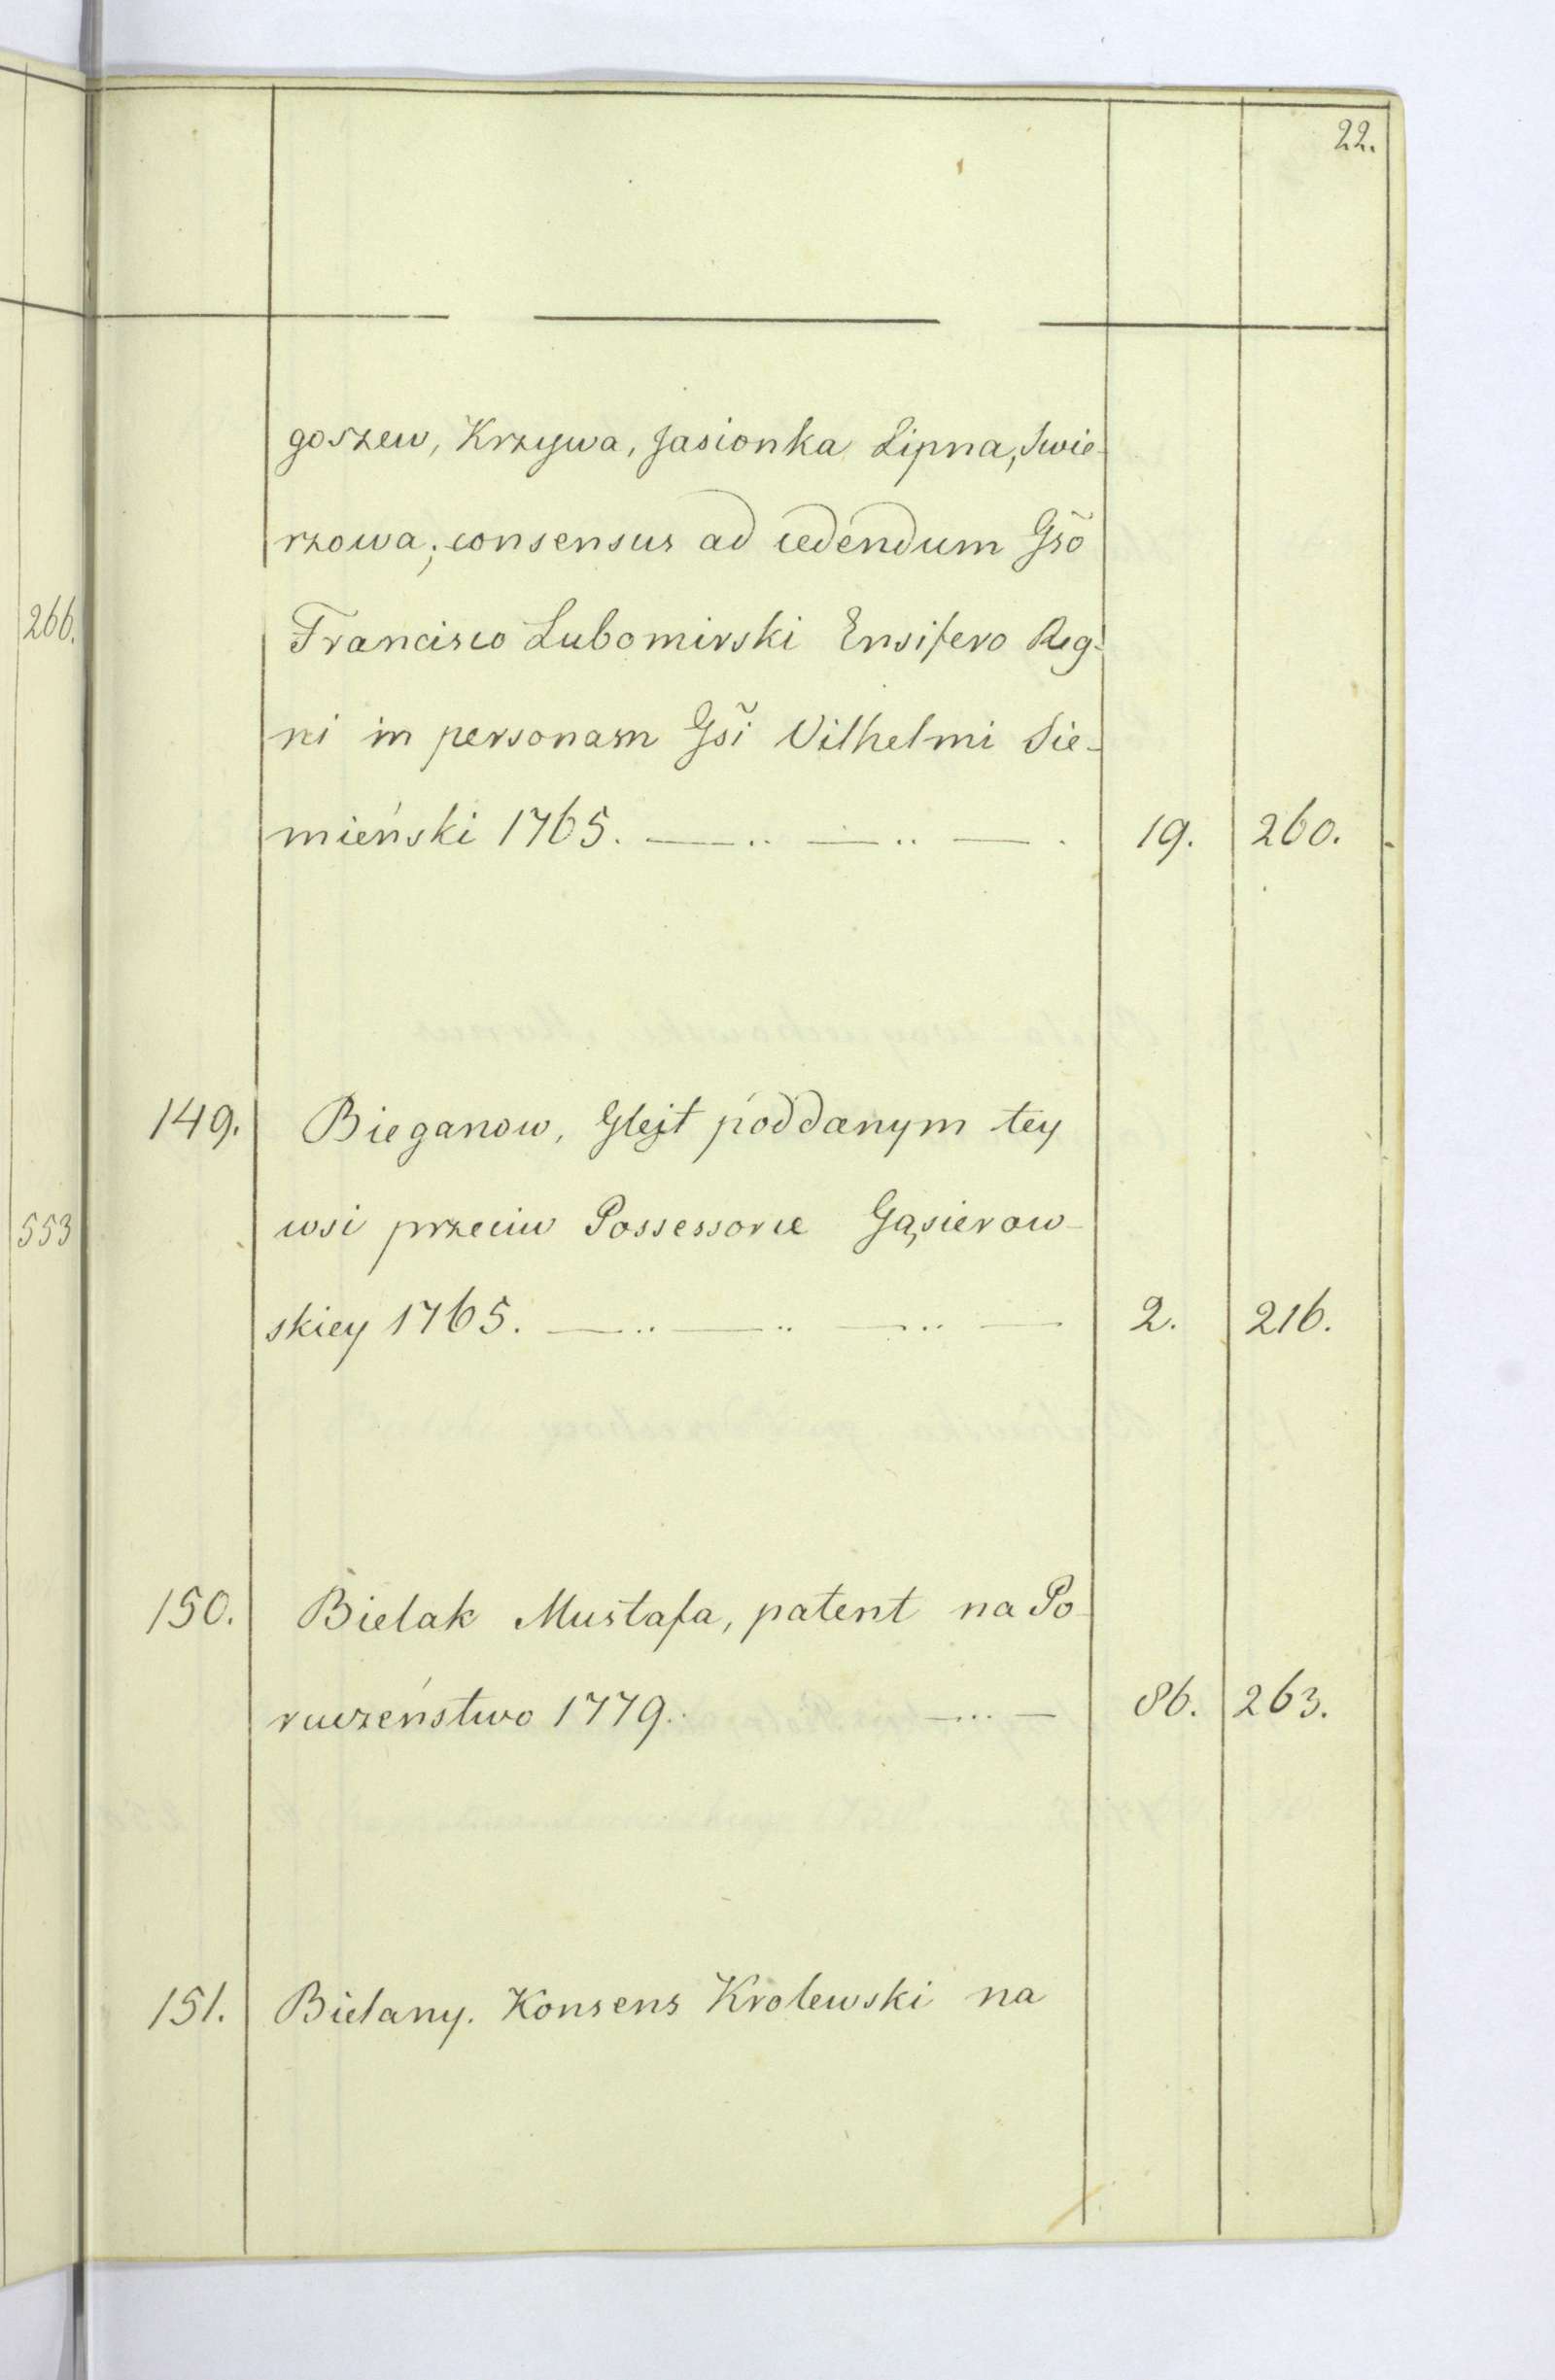 22.
goszew, Krzywa, Jasionka Lipna, Swie-
rzowa; consensus ad cedendum Gso
Francisco Lubomirski Ensifero Reg-
ni in personam Gsi Vilhelmi Sie-
mieński 1765. 19. 260.
149. Bieganow, Glejt poddanym tey
wsi przeciw Possessorce Gąsierow-
skiey 1765. 2. 216.
150. Bielak Mustafa, patent na Po-
ruczeństwo 1779. 86. 263.
151. Bielany. Konsens Krolewski na
266.
553